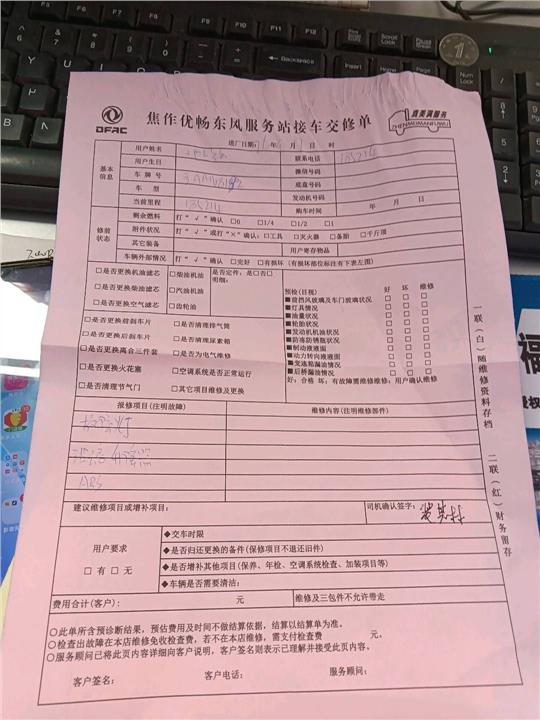 Backspace
Print Screen SysRq
Scroll Lock
Pause Break
Insert
Home
Page Up
Num Lock
DFAC
焦作优畅东风服务站接车交修单
真美满服务
ZHENMEIMANFUWU
进厂日期: 年 月 日 时
基本信息
用户姓名
联系电话
用户生日
微信号码
车牌号
底盘号码
车型
发动机号码
当前里程 135214
购车时间 年 月 日
修前状态
剩余燃料 打“√”确认: □0 □1/4 □1/2 □1
附件状况 打“√”或打“×”确认: □工具 □灭火器 □备胎 □千斤顶
其它装备
用户寄存物品
车辆外部情况 打“√”确认: □完好 □有损坏 (有损坏部位标注有下表左图)
□是否更换机油滤芯 □柴油机油 是否定件: 是□否□
明细:
□是否更换柴油滤芯 □汽油机油
□是否更换空气滤芯 □齿轮油
□是否更换前刹车片 □是否清理排气筒
□是否更换后刹车片 □是否清理尿素箱
□是否更换离合三件套 □是否为电气维修
□是否更换火花塞 □空调系统是否正常运行
□是否清理节气门 □其它项目维修及更换
预检(目视) 好 坏 维修
■前挡风玻璃及车门玻璃状况 □ □ □
■灯具情况 □ □ □
■油量状况 □ □ □
■轮胎状况 □ □ □
■发动机机油状况 □ □ □
■防冻防锈瓶状况 □ □ □
■制动液液面 □ □ □
■动力转向液液面 □ □ □
■变速箱漏油情况 □ □ □
■后桥漏油情况 □ □ □
好: 合格 坏: 有故障需维修维修: 用户确认维修
报修项目(注明故障)
维修内容(注明维修部件)
ABS
建议维修项目或增补项目:
司机确认签字:
用户要求
□有 □无
◆交车时限
◆是否归还更换的备件(保修项目不退还旧件)
◆是否增补其他项目(保养、年检、空调系统检查、加装项目等)
◆车辆是否需要清洁:
费用合计(客户): 元
维修及三包件不允许带走
○此单所含预诊断结果，预估费用及时间不做结算依据，结算以结算单为准。
○检查出故障在本店维修免收检查费，若不在本店维修，需支付检查费 元。
○服务顾问已将此页内容详细向客户说明，客户签名则表示已理解并接受此页内容。
客户签名:
客户电话:
服务顾问:
一联(白)随维修资料存档
二联(红)财务留存
福